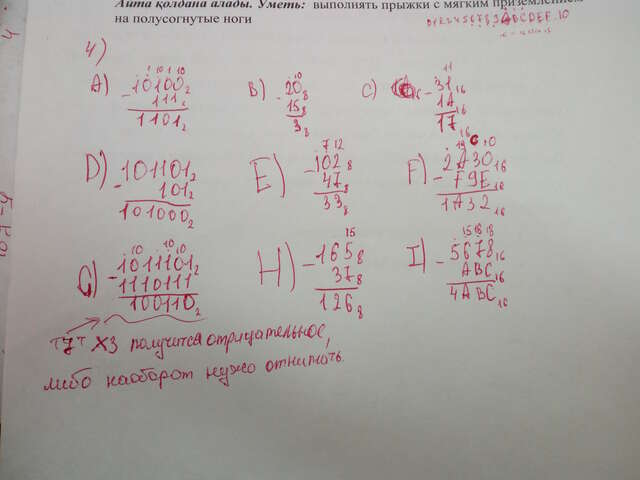 Айта қолдана алады. Уметь: выполнять прыжки с мягким приземлением
на полусогнутые ноги
4)
A) 10100₂ - 111₂ = 1101₂
B) 20₈ - 15₈ = 3₈
C) 31₁₆ - 1A₁₆ = 17₁₆
D) 101101₂ - 101₂ = 101000₂
E) 102₈ - 47₈ = 33₈
F) 2A30₁₆ - F9E₁₆ = 1A32₁₆
G) 1011101₂ - 1110111₂ = 100110₂
H) 165₈ - 37₈ = 126₈
I) 5678₁₆ - ABC₁₆ = 4ABC₁₆
"7" ХЗ получится отрицательное,
либо наоборот нужно отнимать.